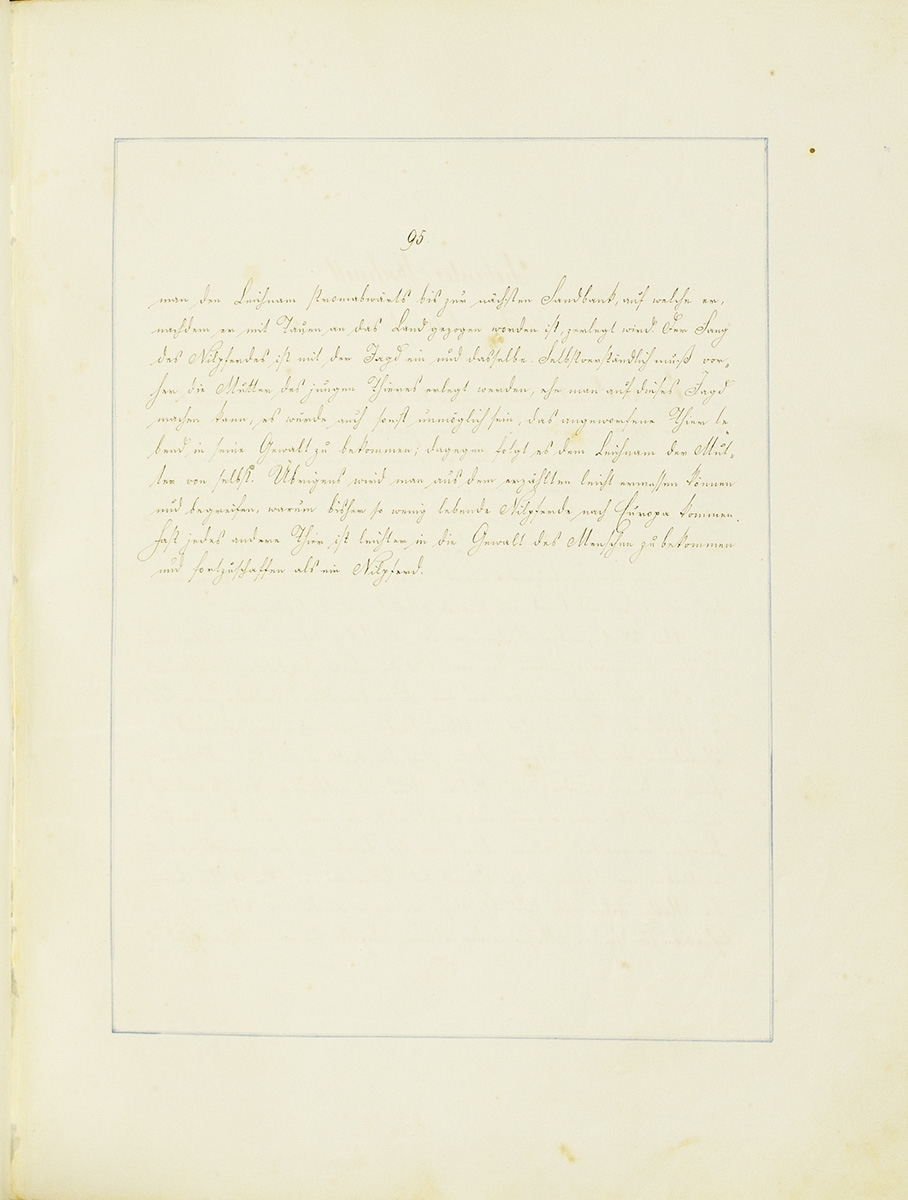 95.
man den Leichnam stromabwärts bis zur nächsten Sandbank, auf welche er,
nachdem er mit Tauen an das Land gezogen worden ist, zerlegt wird. Der Fang
des Nilpferdes ist mit der Jagd ein und dasselbe. Selbstverständlich muß vor-
her die Mutter des jungen Thieres erlegt werden, ehe man auf dieses Jagd
machen kann, es würde auch sonst unmöglich sein, das angeworfene Thier le-
bend in seine Gewalt zu bekommen; dagegen folgt es dem Leichnam der Mut-
ter von selbst. Übrigens wird man aus dem erzählten leicht ermessen können
und begreifen, warum bisher so wenig lebende Nilpferde nach Europa kommen.
Fast jedes andere Thier ist leichter in die Gewalt des Menschen zu bekommen
und fortzuschaffen als ein Nilpferd.